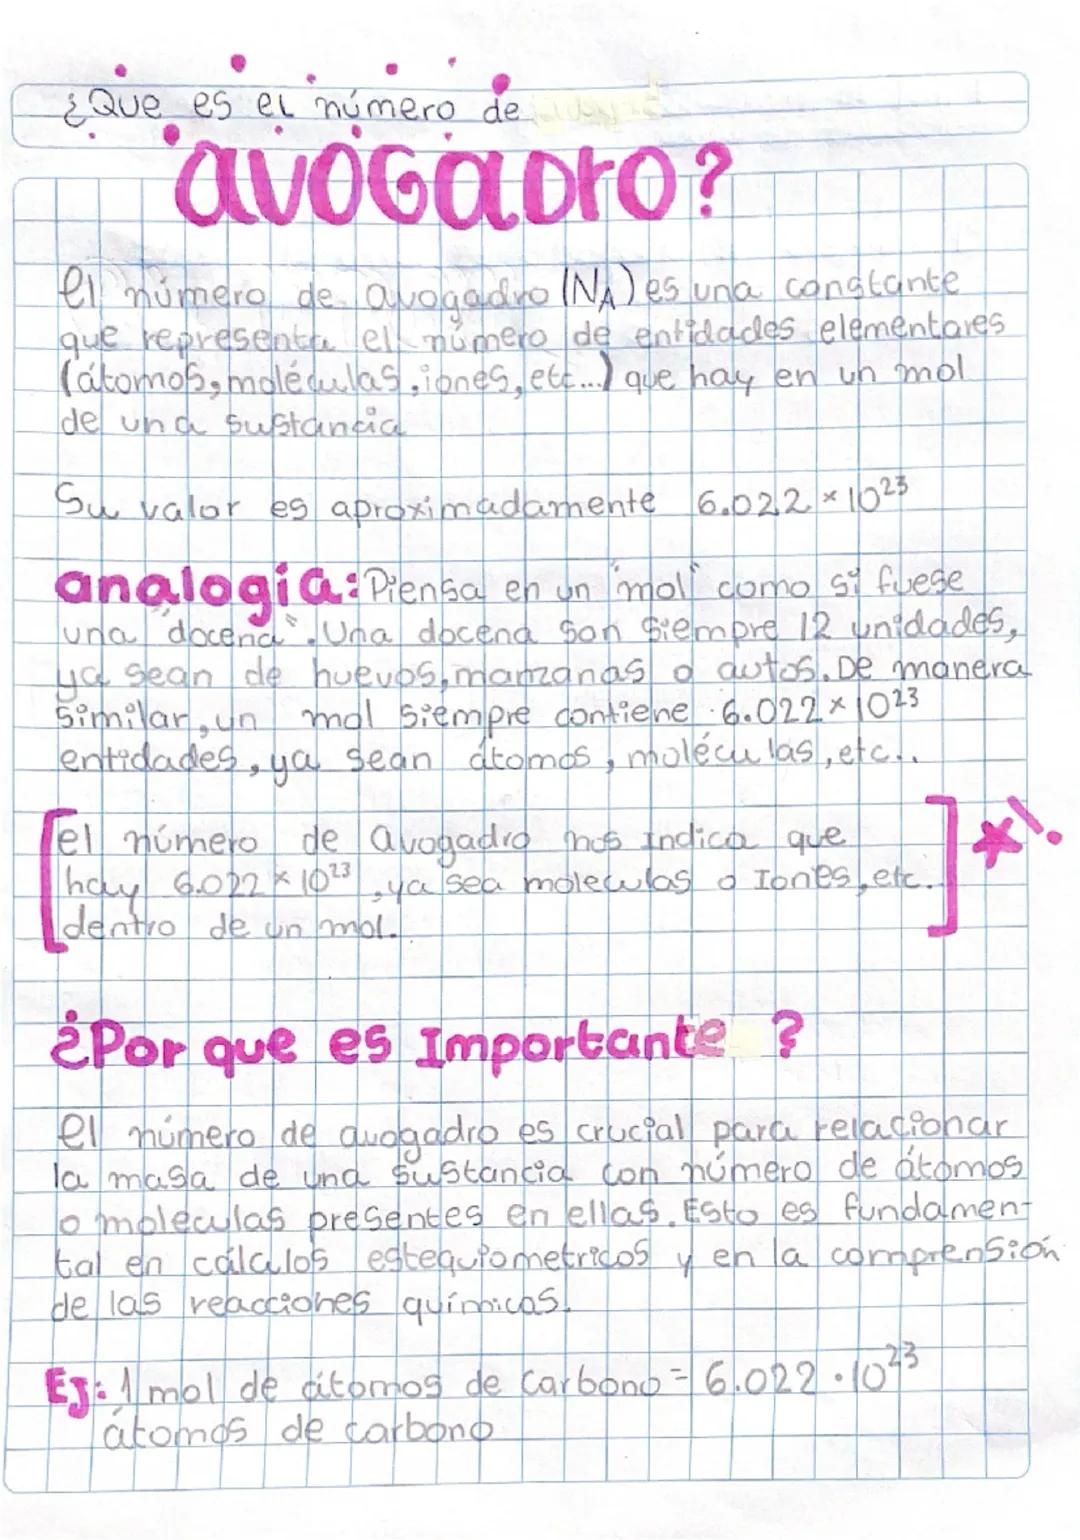 ¿Que es el número de
avogadro?
el número de avogadro (NA) es una constante
que representa el número de entidades elementares
(átomos, moléculas, iones, etc...) que hay en un mol
de una sustancia
Su valor es aproximadamente 6.022 × 10²³
analogía: Piensa en un "mol" como si fuese
una "docena". Una docena son siempre 12 unidades,
ya sean de huevos, manzanas o autos. De manera
similar, un mol siempre contiene 6.022 × 10²³
entidades, ya sean átomos, moléculas, etc..
[el número de avogadro nos Indica que
hay 6.022 × 10²³, ya sea moleculas o Iones, etc.
dentro de un mol.] *!
¿Por que es Importante ?
el número de avogadro es crucial para relacionar
la masa de una sustancia con número de átomos
o moleculas presentes en ellas. Esto es fundamen-
tal en cálculos estequiometricos y en la comprensión
de las reacciones químicas.
EJ: 1 mol de átomos de carbono = 6.022 · 10²³
átomos de carbono